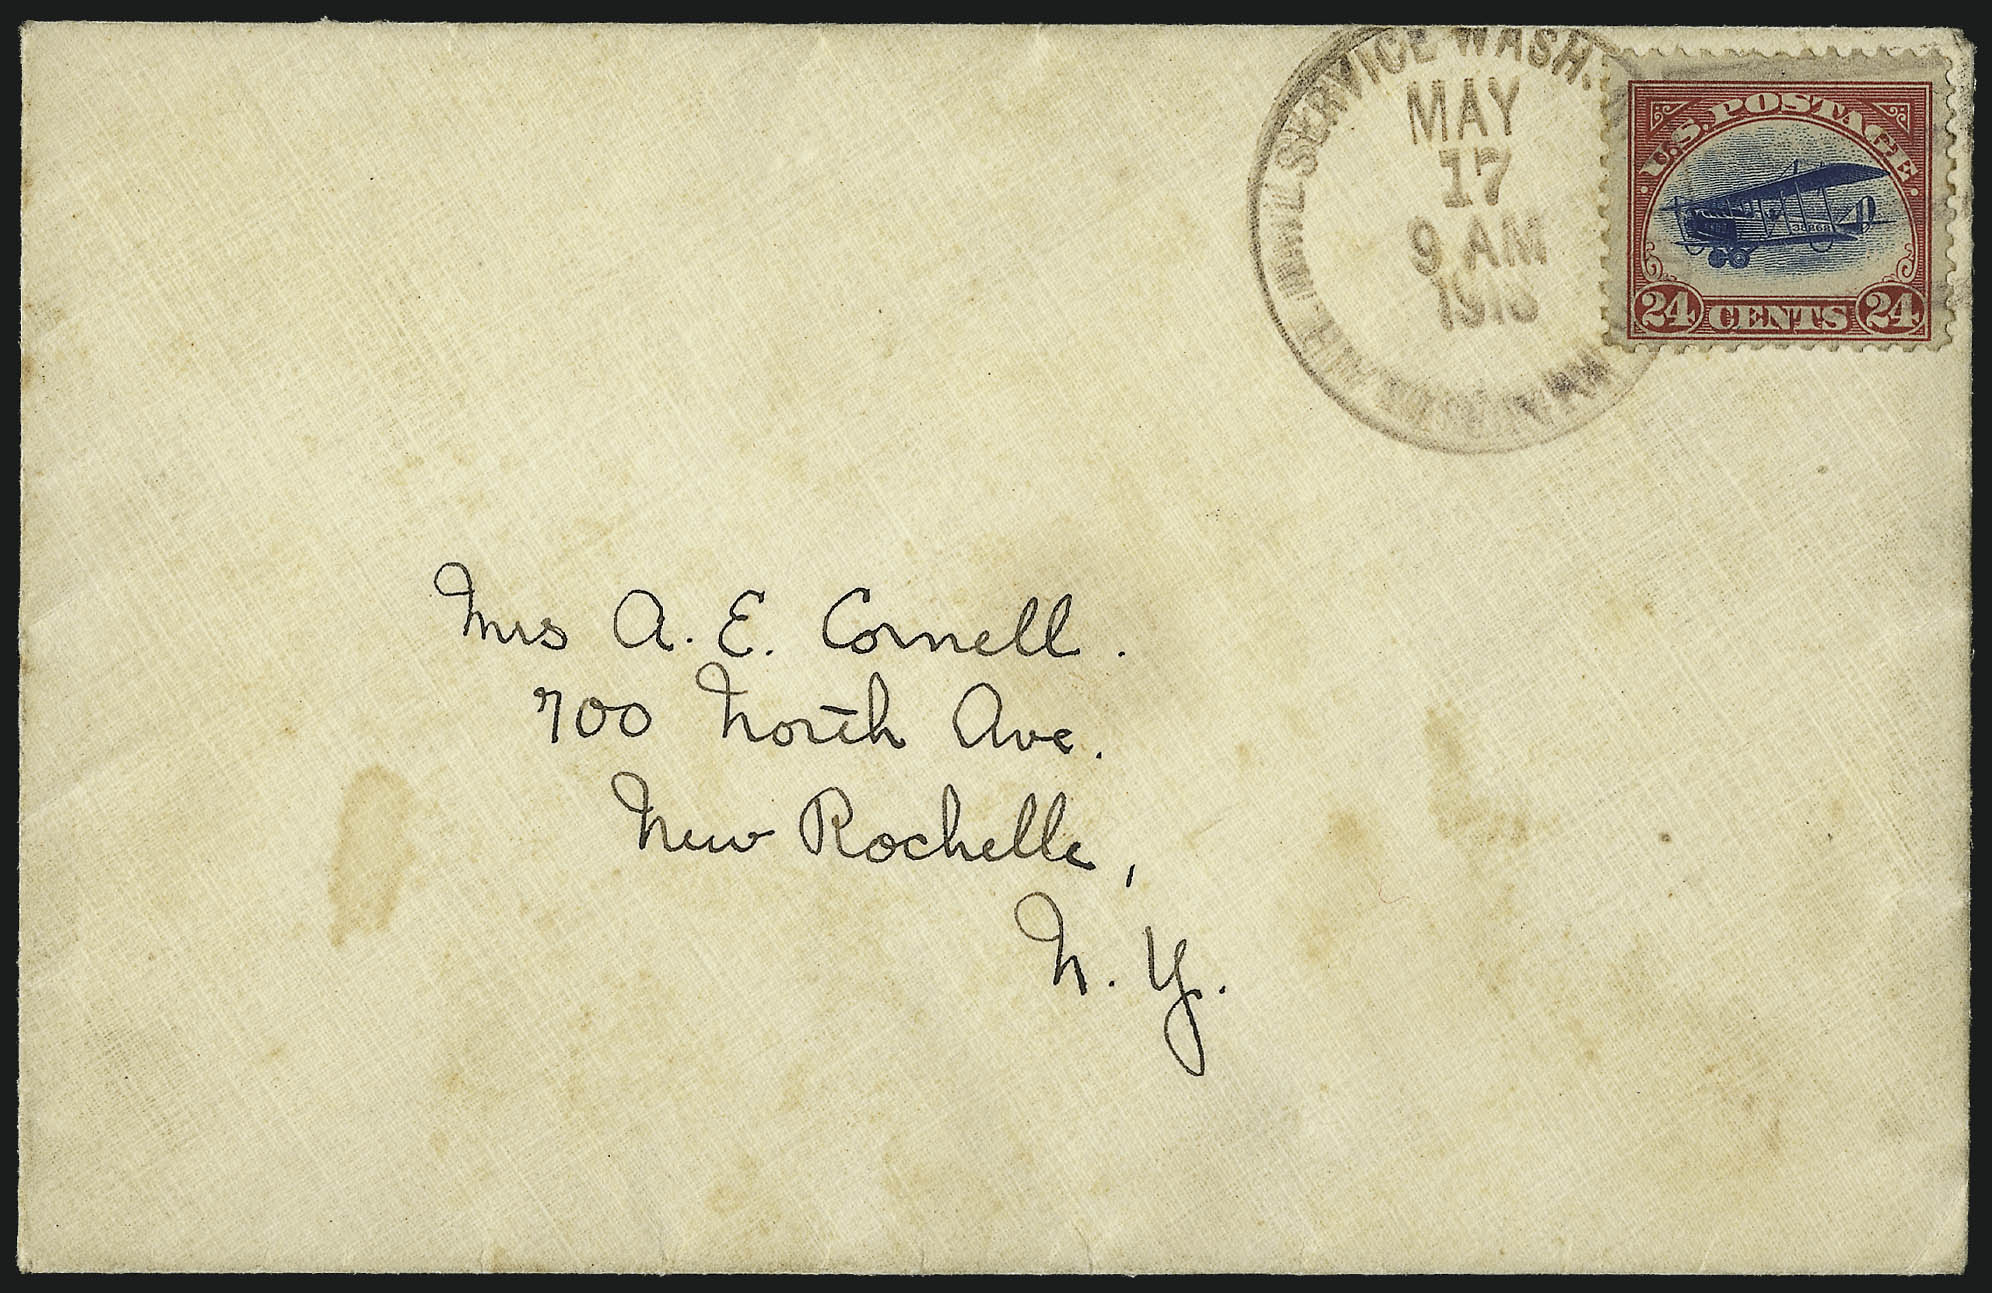 AIR MAIL SERVICE WASH.
MAY
17
9 AM
1918
U.S. POSTAGE
38262
24 CENTS 24
Mrs A. E. Cornell.
700 North Ave.
New Rochelle,
N. Y.